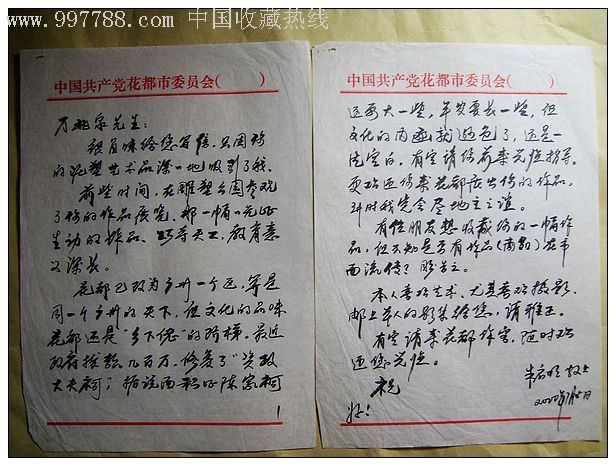 www.997788.com 中国收藏热线
中国共产党花都市委员会( )
万兆泉先生:
很冒昧给您写信,只因你
的泥塑艺术品深心地吸引了我。
前些时间,在雕塑公园参观
了你的作品展览,那一幅心栩
生动的作品,巧夺天工,教育意
义深长。
花都已改为广州一个区,算是
同一个广州的天下,但文化的品味
花都还是"乡下佬"的阶梯。最近
政府拨款几百万,修复了"资政
大夫祠";据说面积比陈家祠
1
中国共产党花都市委员会( )
还要大一些,年岁要长一些,但
文化的内涵就逊色了,还是一
片空白,有空请你前来光临指导。
更欢迎你来花都展出你的作品,
到时我定会尽地主之谊。
有位朋友想收藏你的一幅作
品,但不知是否有作品(商品)在市
面流传?盼告之。
本人喜欢艺术,尤其喜欢摄影,
邮上本人的影集给您,请雅正。
有空请来花都作客,随时欢
迎您光临。
祝
好!
敬上
2000年 月 日